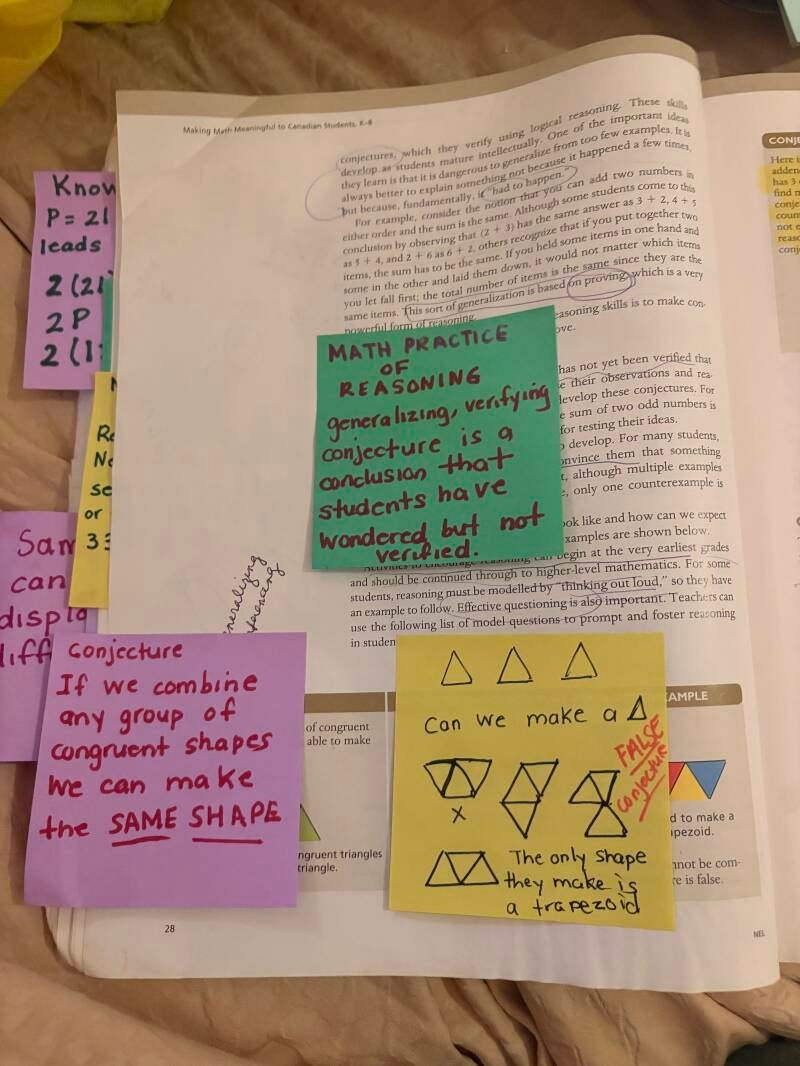 Making Math Meaningful to Canadian Students, K–8
conjectures, which they verify using logical reasoning. These skills
develop as students mature intellectually. One of the important ideas
they learn is that it is dangerous to generalize from too few examples. It is
always better to explain something not because it happened a few times,
but because, fundamentally, it "had to happen."
For example, consider the notion that you can add two numbers in
either order and the sum is the same. Although some students come to this
conclusion by observing that (2 + 3) has the same answer as 3 + 2, 4 + 5
as 5 + 4, and 2 + 6 as 6 + 2, others recognize that if you put together two
items, the sum has to be the same. If you held some items in one hand and
some in the other and laid them down, it would not matter which items
you let fall first; the total number of items is the same since they are the
same items. This sort of generalization is based on proving, which is a very
powerful form of reasoning.
reasoning skills is to make con-
has not yet been verified that
their observations and rea-
develop these conjectures. For
sum of two odd numbers is
for testing their ideas.
develop. For many students,
convince them that something
although multiple examples
only one counterexample is
look like and how can we expect
examples are shown below.
Activities to encourage reasoning can begin at the very earliest grades
and should be continued through to higher-level mathematics. For some
students, reasoning must be modelled by "thinking out loud," so they have
an example to follow. Effective questioning is also important. Teachers can
use the following list of model questions to prompt and foster reasoning
in studen
MATH PRACTICE
OF
REASONING
generalizing, verifying
conjecture is a
conclusion that
students have
wondered but not
verified.
Know
P = 2l
leads
2(2l
2P
2(1
Re
No
se
or
33
Sam
can
displa
diff
Conjecture
If we combine
any group of
congruent shapes
we can make
the SAME SHAPE
Can we make a
FALSE
conjecture
X
The only shape
they make is
a trapezoid
of congruent
able to make
ngruent triangles
triangle.
AMPLE
d to make a
pezoid.
nnot be com-
re is false.
28
NEL
CONJE
Here i
adden
has 3
find m
conje
coun
not e
reaso
conj